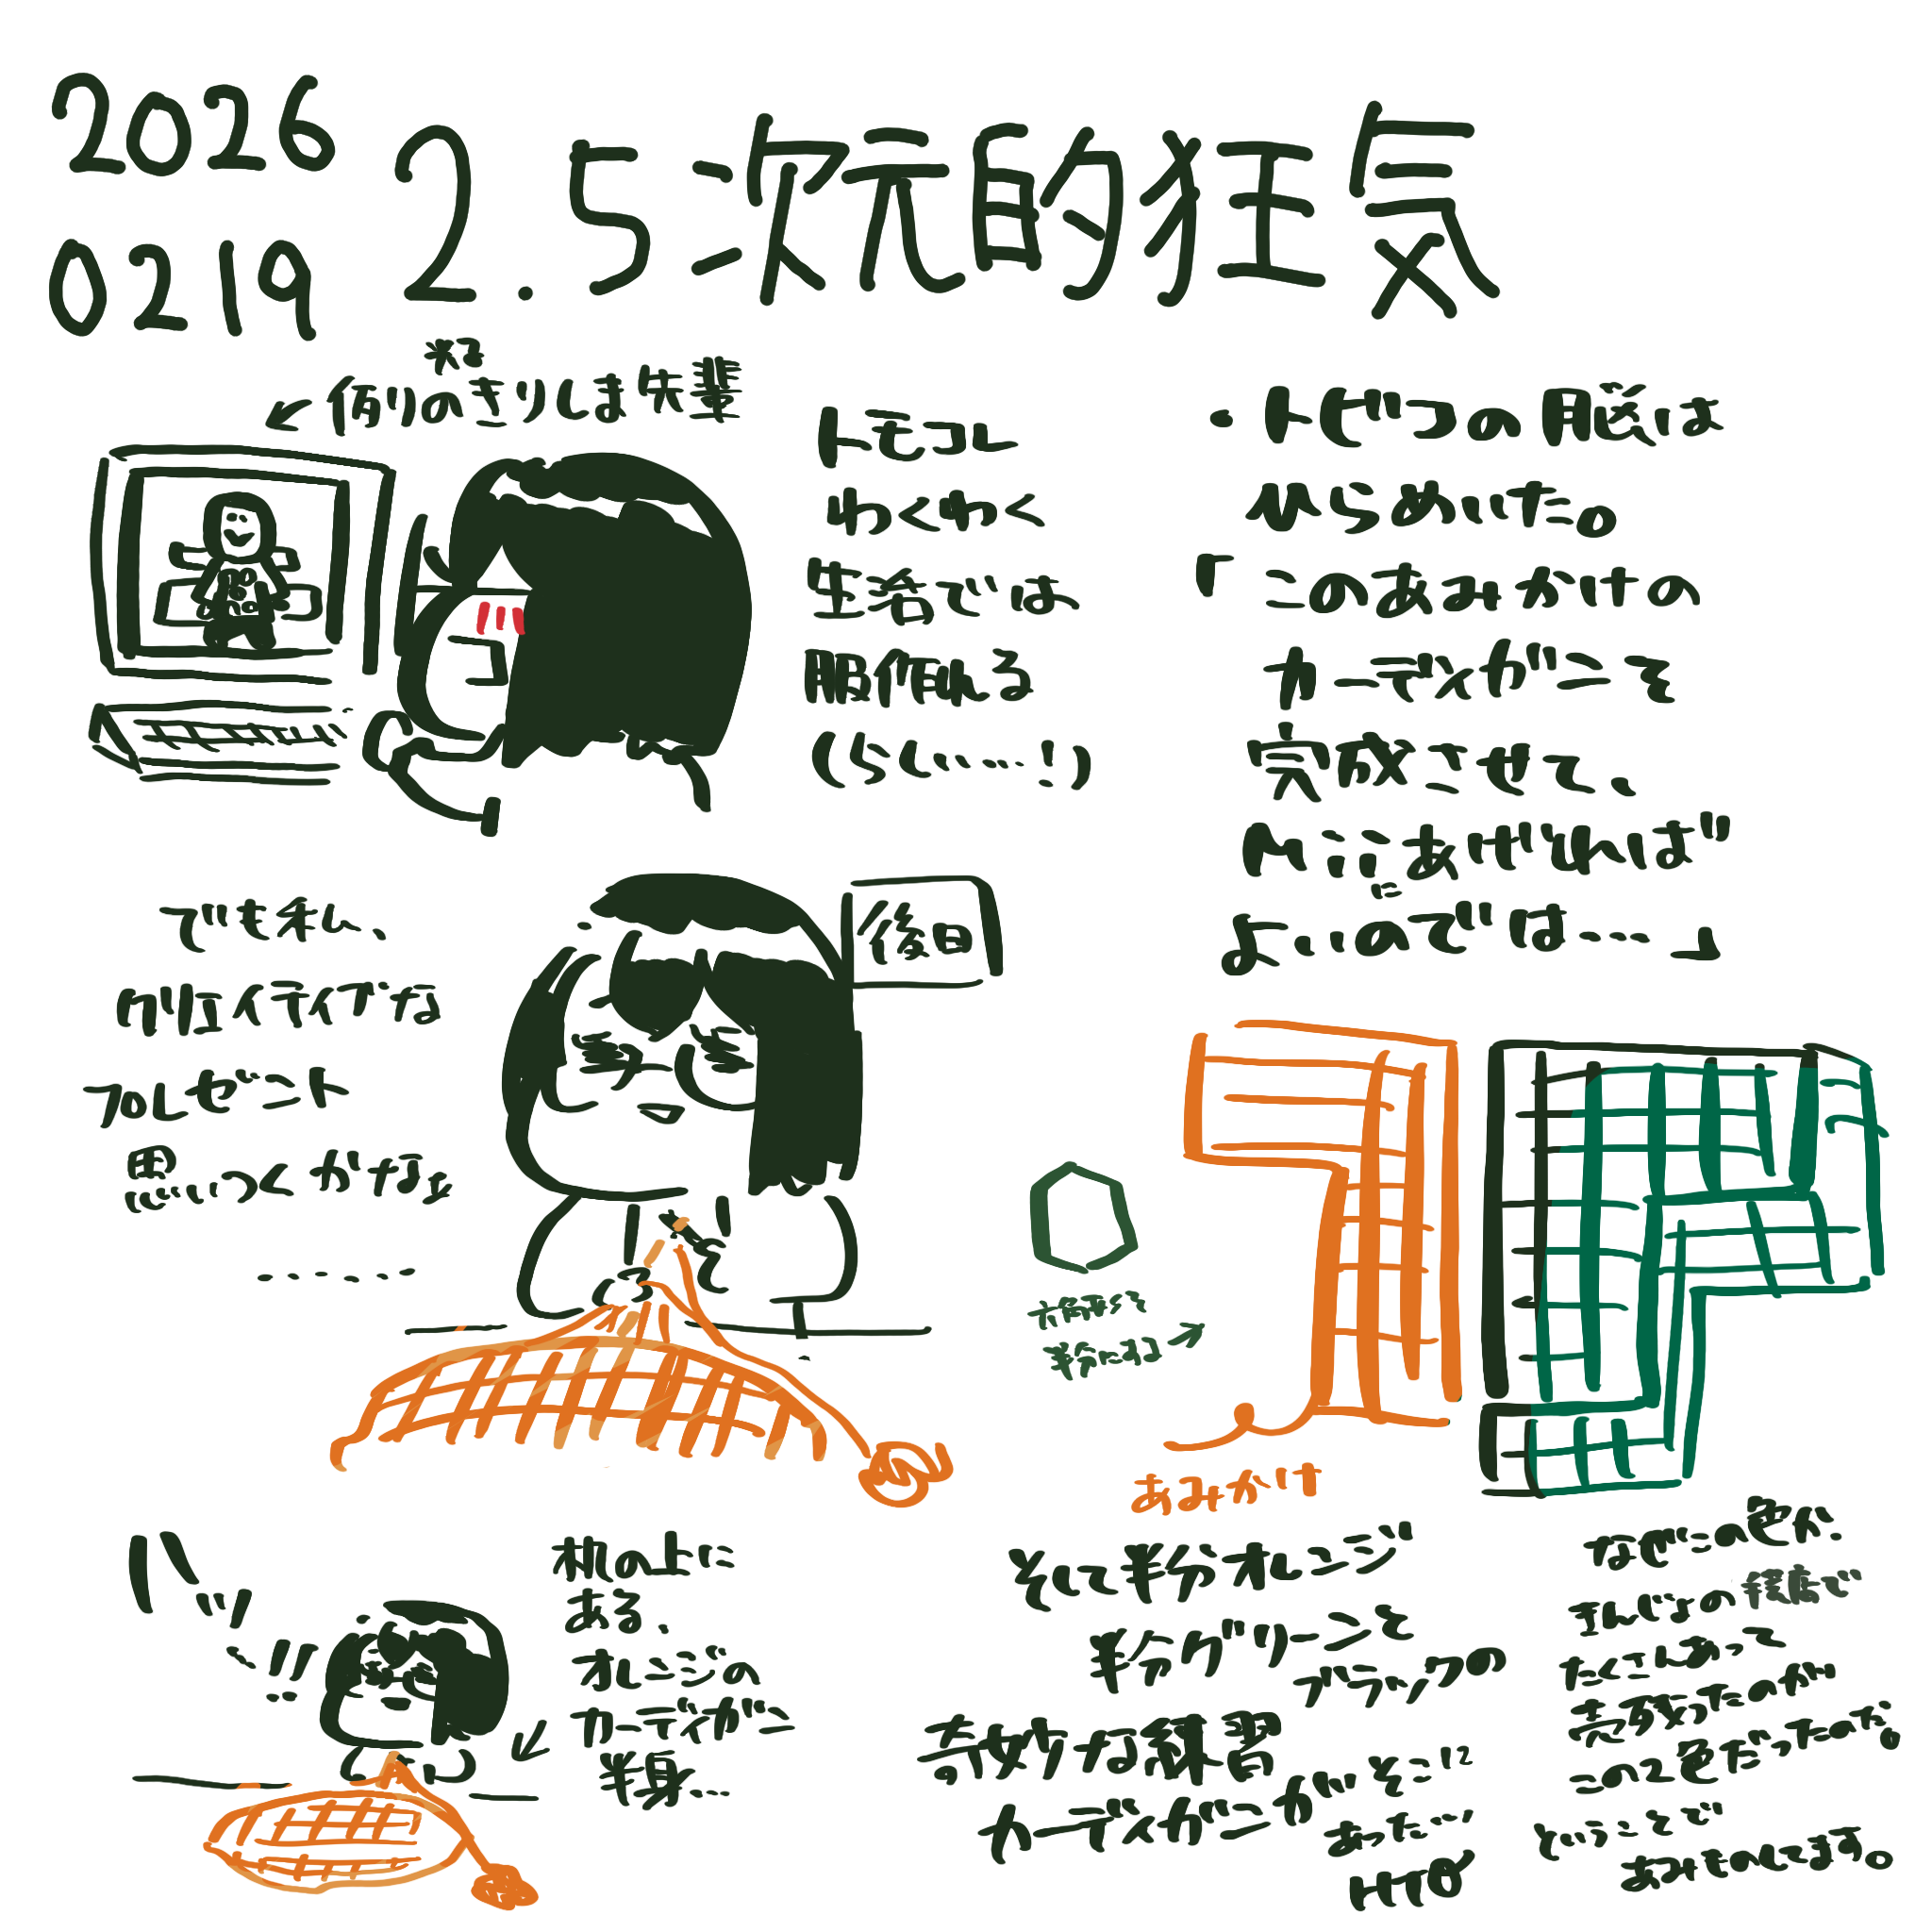 2026
0219
2.5次元的狂気
←例のきりしま先輩
トモコレ
わくわく
生活では
服作れる
(らしい…!)
でも私、
クリエイティブな
プレゼント
思いつくかなぁ
……
後日
・トビつの脳は
ひらめいた。
「このあみかけの
カーディガンを
完成させて、
Miiにあげれば
よいのでは…」
六角形を
半分にする→
あみかけ
ハッ
机の上に
ある、
オレンジの
カーディガン
半身…
そして半分オレンジ
半分グリーンと
ブラックの
奇妙な練習
カーディガンが
そこに
あった…!
なぜこの色か。
たくさんあって
この2色だったのだ。
ということで
あみものしてます。